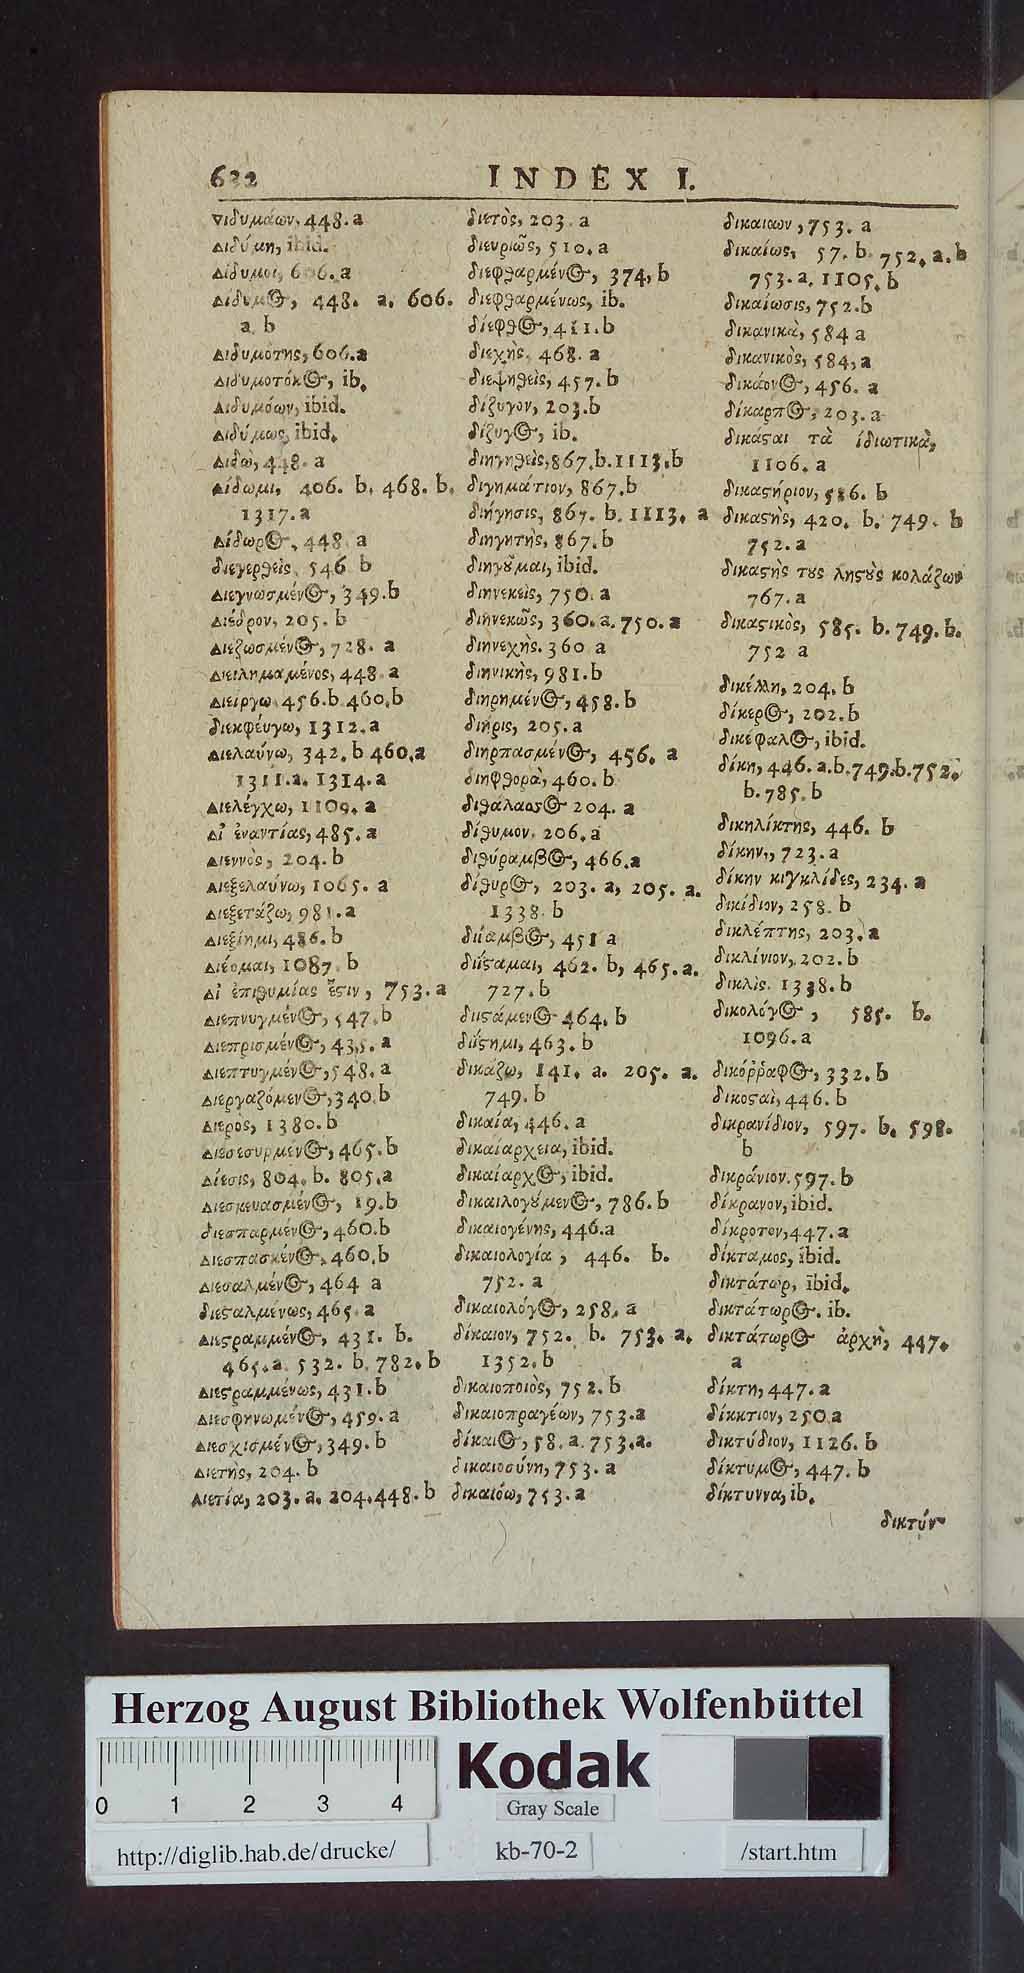 632 INDEX I.
Διδυμάων, 448. a
Διδύμη, ibid.
Δίδυμοι, 606. a
Δίδυμος, 448. a. 606.
a. b
Διδυμότης, 606. a
Διδυμοτόκος, ib.
Διδυμόων, ibid.
Διδύμως, ibid.
Διδω, 448. a
Δίδωμι, 406. b. 468. b.
1317. a
Δίδωρος, 448. a
διεγερθεὶς, 546 b
Διεγνωσμένος, 349. b
Διέδρον, 205. b
Διεζωσμένος, 728. a
Διειλημμένος, 448. a
Διείργω 456. b. 460. b
διεκφεύγω, 1312. a
Διελαύνω, 342. b 460. a
1311. a. 1314. a
Διελέγχω, 1109. a
Δι' ἐναντίας, 485. a
Διεννὸς, 204. b
Διεξελαύνω, 1065. a
Διεξετάζω, 981. a
Διεξίημι, 486. b
Διέομαι, 1087. b
Δι' ἐπιθυμίας ἔστιν, 753. a
Διεπνυγμένος, 547. b
Διεπρισμένος, 435. a
Διεπτυγμένος, 548. a
Διεργαζόμενος, 340. b
Διερὸς, 1380. b
Διεσεσυρμένος, 465. b
Δίεσις, 804. b. 805. a
Διεσκευασμένος, 19. b
διεσπαρμένος, 460. b
Διεσπασμένος, 460. b
Διεσαλμένος, 464 a
διεσταλμένως, 465. a
Διεστραμμένος, 431. b.
465. a. 532. b. 782. b
Διεστραμμένως, 431. b
Διεσφηνωμένος, 459. a
Διεσχισμένος, 349. b
Διετὴς, 204. b
Διετία, 203. a. 204. 448. b
διετὸς, 203. a
διευριῶς, 510. a
διεφθαρμένος, 374, b
διεφθαρμένως, ib.
δίεφθος, 411. b
διεχὴς, 468. a
διεψηθεὶς, 457. b
δίζυγον, 203. b
δίζυγος, ib.
διηγηθεὶς, 867. b. 1113. b
διγημάτιον, 867. b
διήγησις, 867. b. 1113. a
διηγητὴς, 867. b
διηγοῦμαι, ibid.
διηνεκεὶς, 750. a
διηνεκῶς, 360. a. 750. a
διηνεχὴς. 360 a
διηνικὴς, 981. b
διηρημένος, 458. b
διήρις, 205. a
διηρπασμένος, 456. a
διηφθορὰ, 460. b
διθάλασσος 204. a
δίθυμον. 206. a
διθύραμβος, 466. a
δίθυρος, 203. a, 205. a.
1338. b
διΐαμβος, 451 a
διΐσταμαι, 462. b, 465. a.
727. b
διϊστάμενος 464. b
διΐστημι, 463. b
δικάζω, 141. a. 205. a.
749. b
δικαία, 446. a
δικαίαρχεια, ibid.
δικαίαρχος, ibid.
δικαιλογούμενος, 786. b
δικαιογένης, 446. a
δικαιολογία, 446. b.
752. a
δικαιολόγος, 258. a
δίκαιον, 752. b. 753. a.
1352. b
δικαιοποιὸς, 752. b
δικαιοπραγέων, 753. a
δίκαιος, 58. a. 753. a.
δικαιοσύνη, 753. a
δικαιόω, 753. a
δικαιαων, 753. a
δικαίως, 57. b. 752. a. b
753. a. 1105. b
δικαίωσις, 752. b
δικανικὰ, 584 a
δικανικὸς, 584, a
δικάονος, 456. a
δίκαρπος, 203. a
δικάσται τὰ ἰδιωτικὰ,
1106. a
δικαστήριον, 586. b
δικαστὴς, 420. b. 749. b
752. a
δικαστὴς τους ληστοὺς κολάζων
767. a
δικαστικὸς, 585. b. 749. b.
752 a
δικέλλη, 204. b
δίκερος, 202. b
δικέφαλος, ibid.
δίκη, 446. a. b. 749. b. 752.
b. 785. b
δικηλίκτης, 446. b
δίκην,, 723. a
δίκην κιγκλίδες, 234. a
δικίδιον, 258. b
δικλέπτης, 203. a
δικλίνιον, 202. b
δικλὶς. 1338. b
δικολόγος, 585. b.
1096. a
δικόῤῥαφος, 332. b
δικοσταὶ, 446. b
δικρανίδιον, 597. b. 598.
b
δικράνιον. 597. b
δίκρανον, ibid.
δίκροτον, 447. a
δίκταμος, ibid.
δικτάτωρ, ibid.
δικτάτωρος. ib.
δικτάτωρος ἀρχὴ, 447.
a
δίκτη, 447. a
δίκκτιον, 250. a
δικτύδιον, 1126. b
δίκτυμος, 447. b
δίκτυννα, ib.
δικτύν-
Herzog August Bibliothek Wolfenbüttel
0 1 2 3 4
Kodak
Gray Scale
http://diglib.hab.de/drucke/ kb-70-2 /start.htm